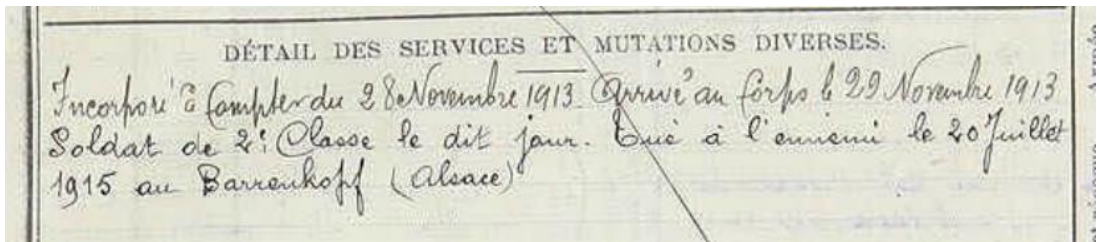 DÉTAIL DES SERVICES ET MUTATIONS DIVERSES.
Incorporé à Compter du 28 Novembre 1913. Arrivé au Corps le 29 Novembre 1913
Soldat de 2e Classe le dit jour. Tué à l'ennemi le 20 Juillet
1915 au Barrenkopf (Alsace)